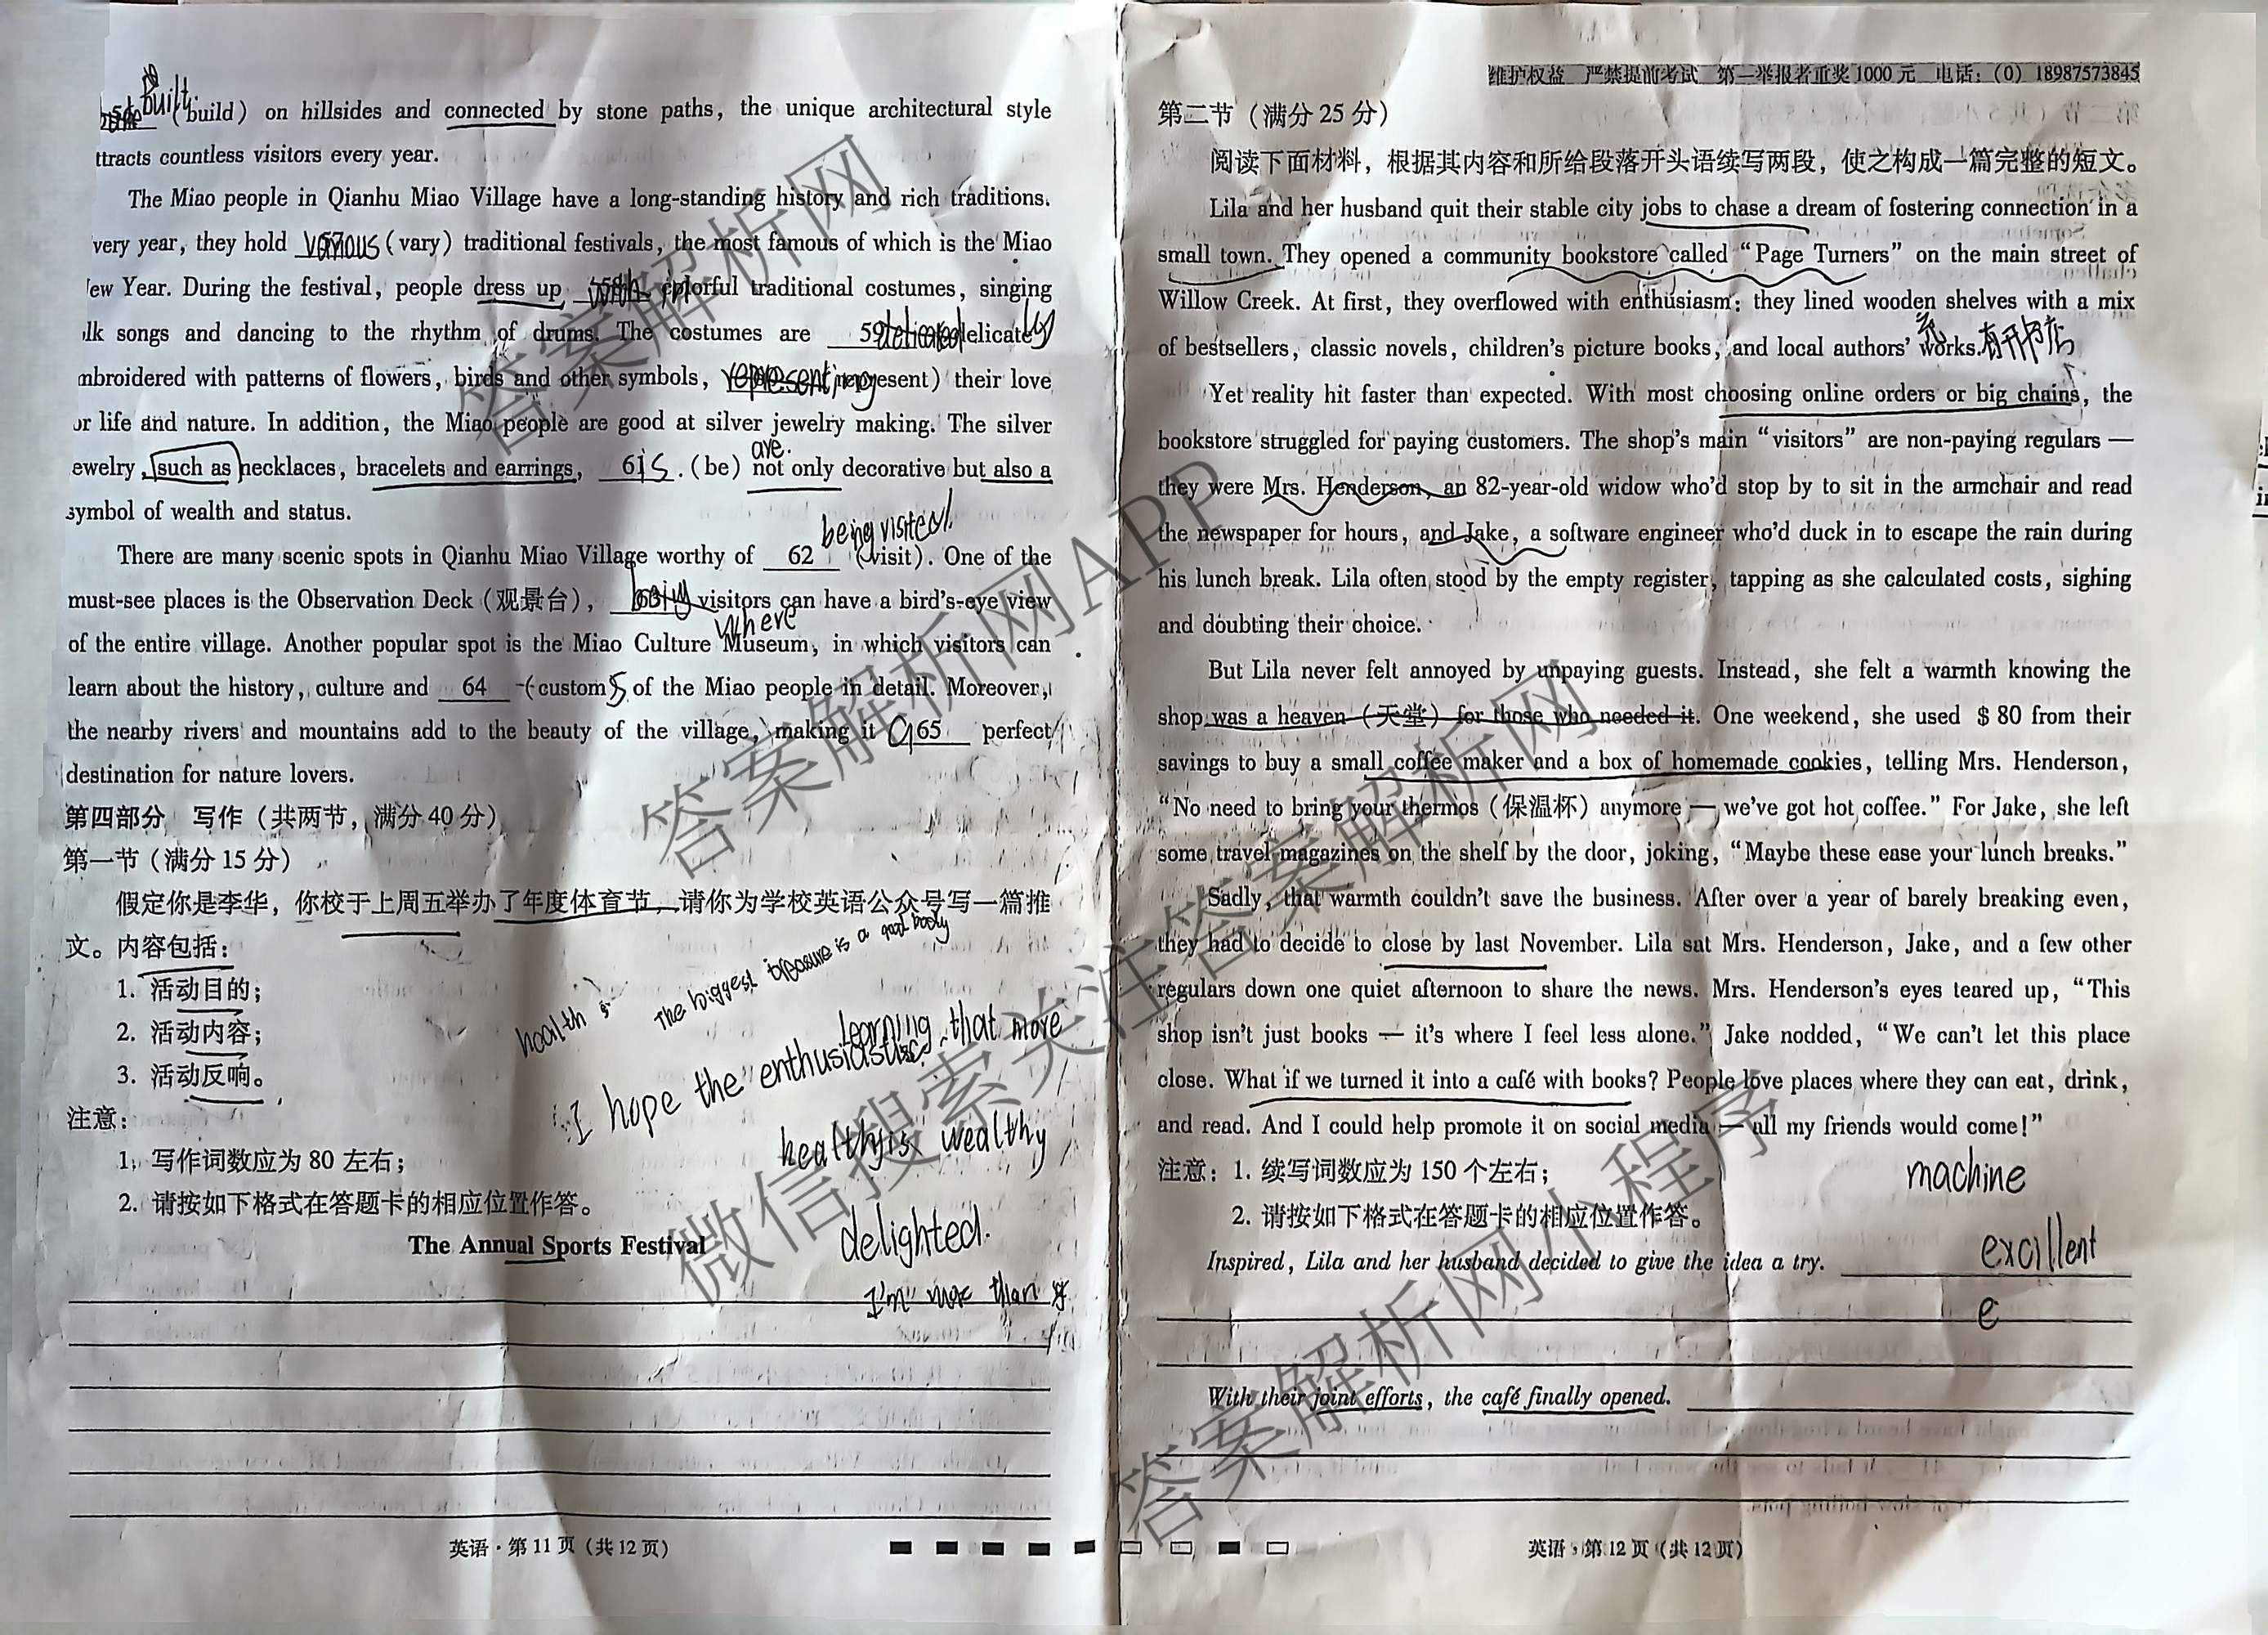 built
56 (build) on hillsides and connected by stone paths, the unique architectural style
ttracts countless visitors every year.
The Miao people in Qianhu Miao Village have a long-standing history and rich traditions.
very year, they hold various 57 (vary) traditional festivals, the most famous of which is the Miao
ew Year. During the festival, people dress up 58 colorful traditional costumes, singing
lk songs and dancing to the rhythm of drums. The costumes are 59 delicately
mbroidered with patterns of flowers, birds and other symbols, representing (represent) their love
or life and nature. In addition, the Miao people are good at silver jewelry making. The silver
are.
ewelry, such as necklaces, bracelets and earrings, 61 is. (be) not only decorative but also a
symbol of wealth and status.
being visited.
There are many scenic spots in Qianhu Miao Village worthy of 62 (visit). One of the
must-see places is the Observation Deck (观景台), 63 visitors can have a bird's-eye view
where
of the entire village. Another popular spot is the Miao Culture Museum, in which visitors can
learn about the history, culture and 64 (custom)s of the Miao people in detail. Moreover,
the nearby rivers and mountains add to the beauty of the village, making it a 65 perfect
destination for nature lovers.
第四部分 写作（共两节，满分 40 分）
第一节（满分 15 分）
假定你是李华，你校于上周五举办了年度体育节，请你为学校英语公众号写一篇推
文。内容包括：
1. 活动目的；
2. 活动内容；
3. 活动反响。
health is
The biggest treasure is a good body
learning that more
I hope the enthusiastic
healthy is wealthy
delighted.
I'm more than
注意：
1. 写作词数应为 80 左右；
2. 请按如下格式在答题卡的相应位置作答。
The Annual Sports Festival
英语·第 11 页（共 12 页）
维护权益 严禁提前考试 第一举报者重奖 1000 元 电话：(0) 18987573845
第二节（满分 25 分）
阅读下面材料，根据其内容和所给段落开头语续写两段，使之构成一篇完整的短文。
Lila and her husband quit their stable city jobs to chase a dream of fostering connection in a
small town. They opened a community bookstore called “Page Turners” on the main street of
Willow Creek. At first, they overflowed with enthusiasm: they lined wooden shelves with a mix
of bestsellers, classic novels, children's picture books, and local authors' works. 有开书店
Yet reality hit faster than expected. With most choosing online orders or big chains, the
bookstore struggled for paying customers. The shop's main “visitors” are non-paying regulars —
they were Mrs. Henderson, an 82-year-old widow who'd stop by to sit in the armchair and read
the newspaper for hours, and Jake, a software engineer who'd duck in to escape the rain during
his lunch break. Lila often stood by the empty register, tapping as she calculated costs, sighing
and doubting their choice.
But Lila never felt annoyed by unpaying guests. Instead, she felt a warmth knowing the
shop was a heaven (天堂) for those who needed it. One weekend, she used $ 80 from their
savings to buy a small coffee maker and a box of homemade cookies, telling Mrs. Henderson,
“No need to bring your thermos (保温杯) anymore — we've got hot coffee.” For Jake, she left
some travel magazines on the shelf by the door, joking, “Maybe these ease your lunch breaks.”
Sadly, that warmth couldn't save the business. After over a year of barely breaking even,
they had to decide to close by last November. Lila sat Mrs. Henderson, Jake, and a few other
regulars down one quiet afternoon to share the news. Mrs. Henderson's eyes teared up, “This
shop isn't just books — it's where I feel less alone.” Jake nodded, “We can't let this place
close. What if we turned it into a café with books? People love places where they can eat, drink,
and read. And I could help promote it on social media — all my friends would come!”
注意：1. 续写词数应为 150 个左右；
2. 请按如下格式在答题卡的相应位置作答。
machine
Inspired, Lila and her husband decided to give the idea a try.
excillent
e
With their joint efforts, the café finally opened.
英语·第 12 页（共 12 页）
答案解析网
答案解析网APP
微信搜索关注答案解析网
答案解析网小程序